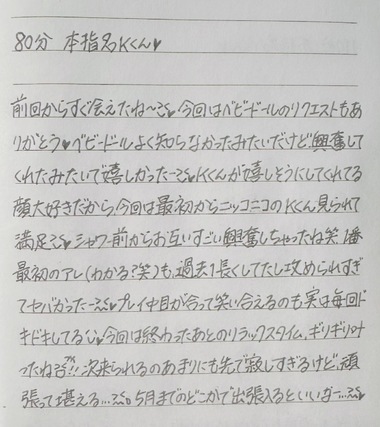 80分 本指名Kくん♥
前回からすぐ会えたね〜♥ 今回はベビードールのリクエストもあ
りがとう♥ベビードールよく知らなかったみたいだけど興奮して
くれたみたいで嬉しかったー♥Kくんが嬉しそうにしてくれてる
顔大好きだから、今回は最初からニッコニコのKくん見られて
満足♥シャワー前からお互いすごい興奮しちゃったね笑
最初のアレ(わかる?笑)も、過去1長くしてたし攻められすぎ
てヤバかったー♥プレイ中目が合って笑い合えるのも実は毎回ド
キドキしてる♡今回は終わったあとのリラックスタイム、ギリギリ
ったね!!次来られるのあまりにも先で寂しすぎるけど、頑
張って堪える...。5月までのどこかで出張入るといいなー...♥